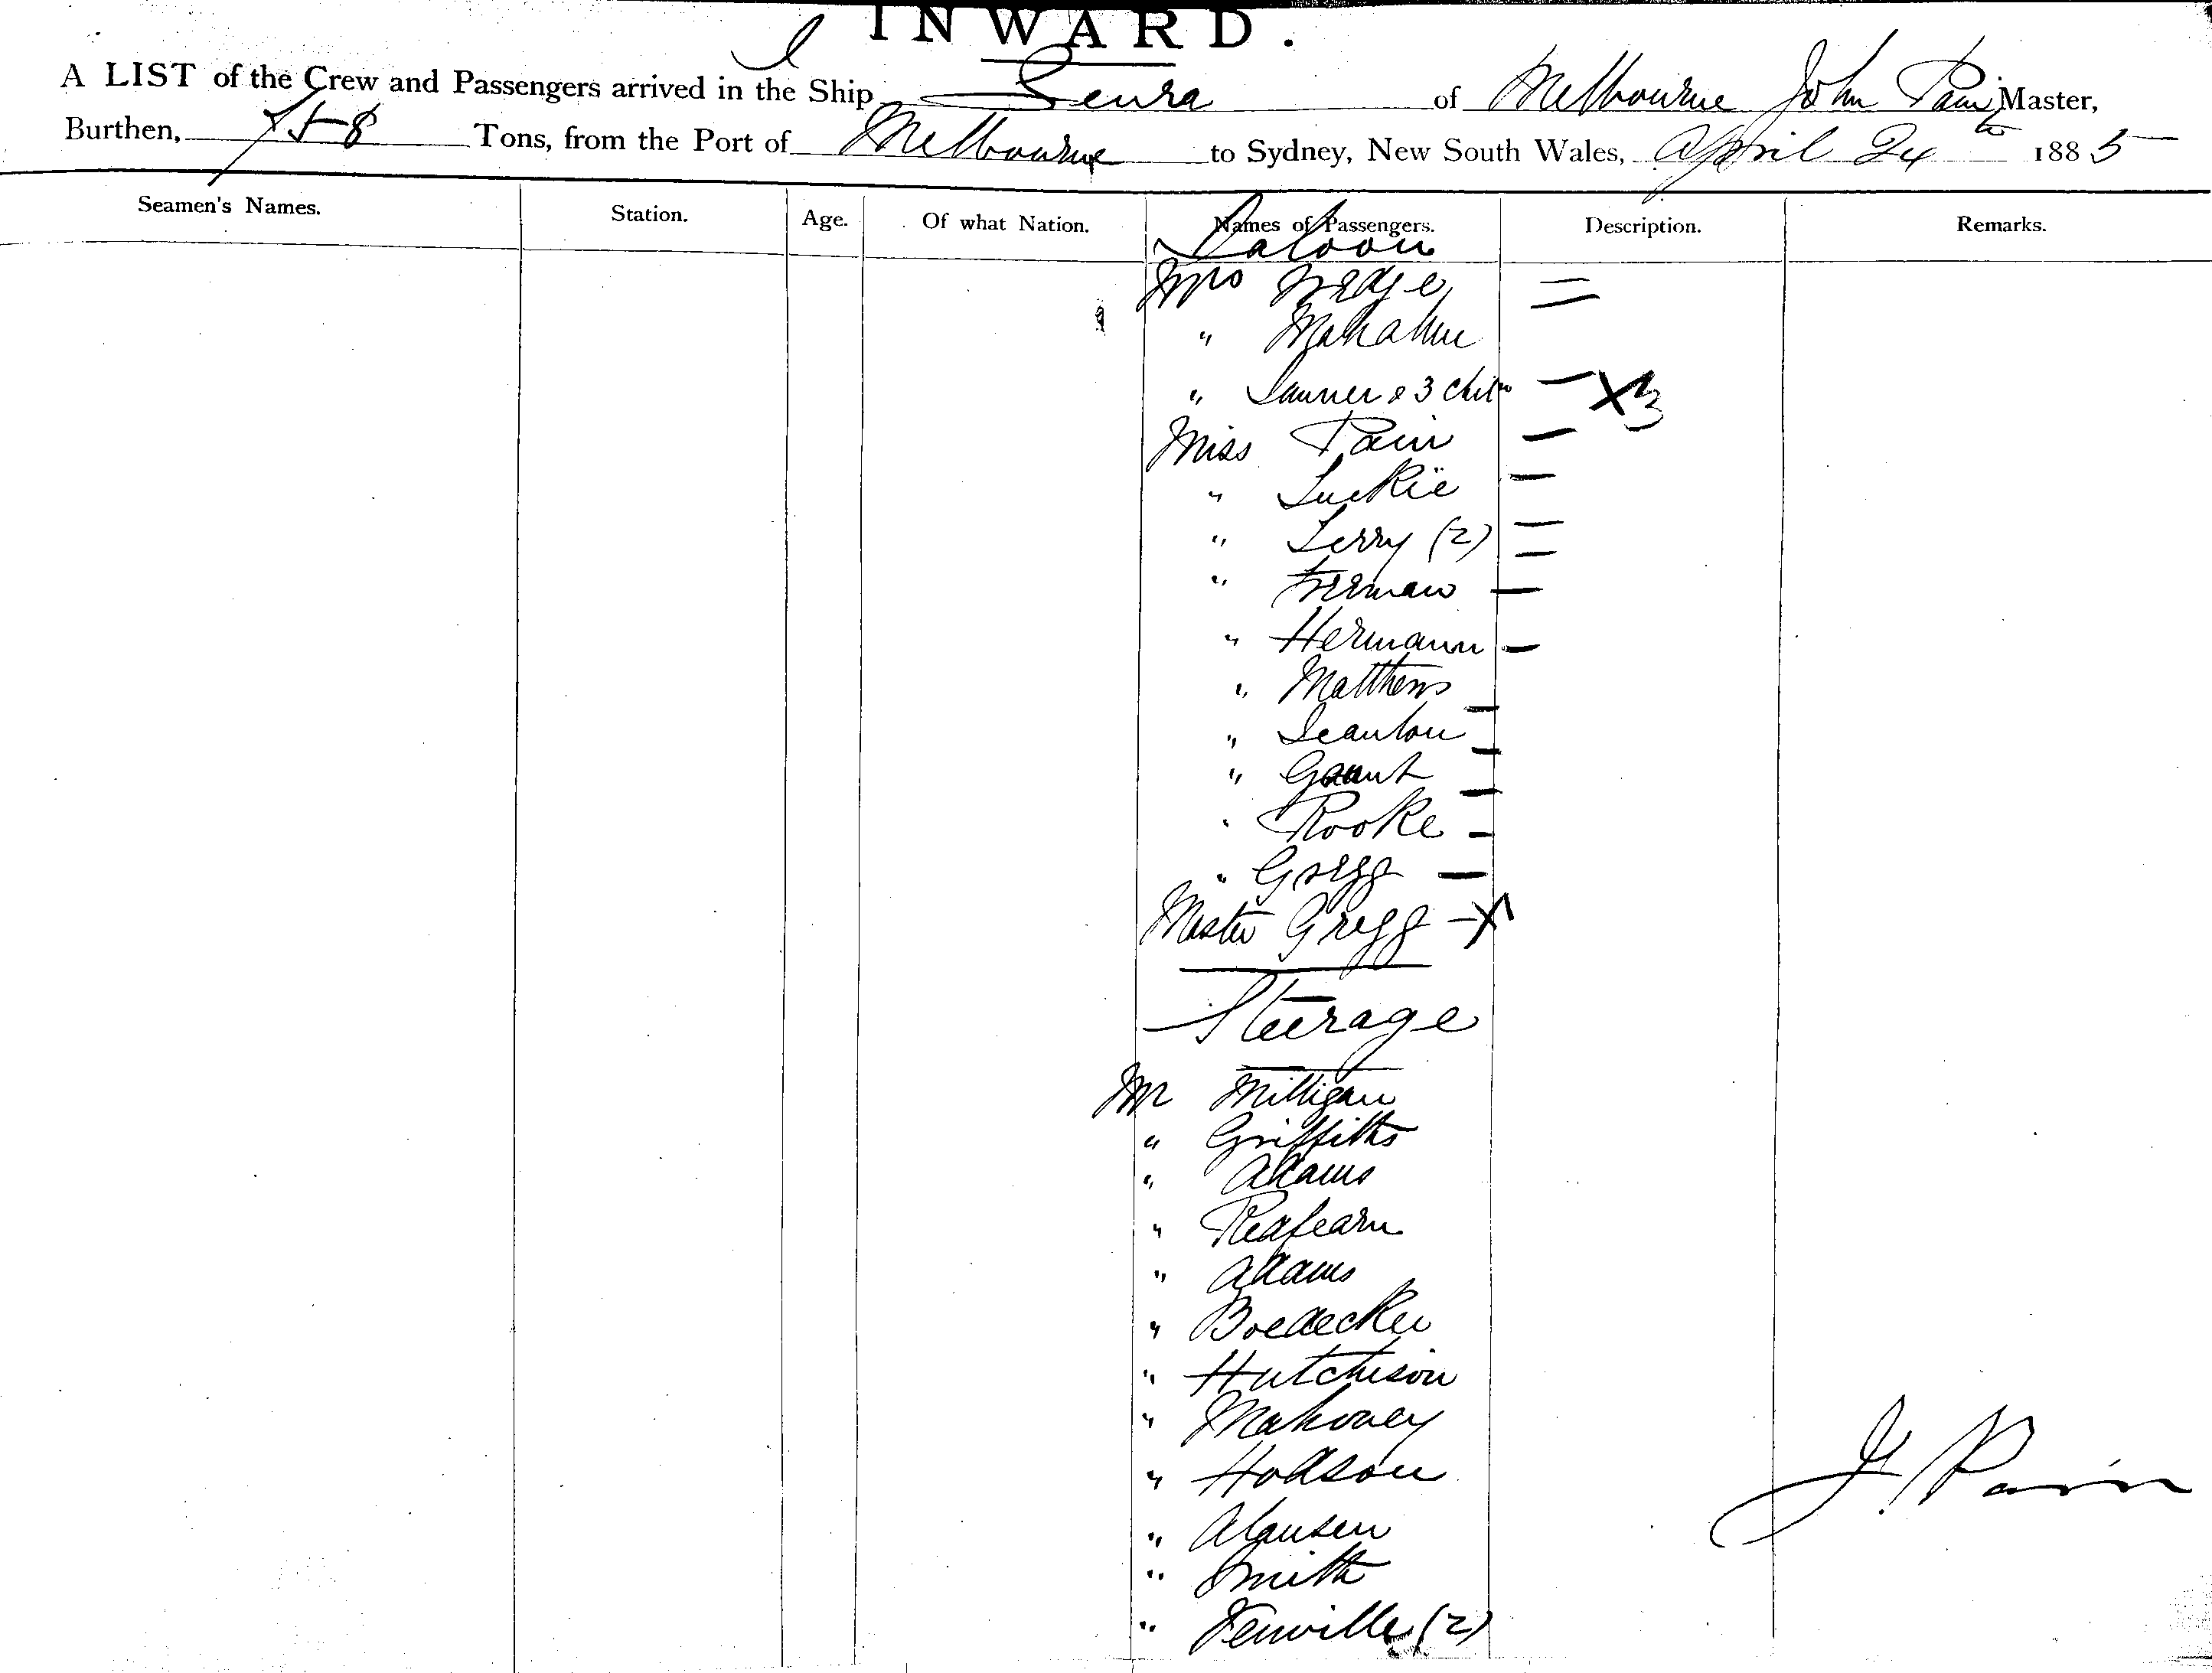 INWARD.
A LIST of the Crew and Passengers arrived in the Ship Leura of Melbourne John Pain Master,
Burthen, 758 Tons, from the Port of Melbourne to Sydney, New South Wales, April 24th 1885
Seamen's Names. Station. Age. Of what Nation. Names of Passengers. Description. Remarks.
Saloon
Mrs
"
" & 3 chil
X 3
Miss Pain
" Luckie
" Terry (2)
" Freeman
" Hermann
" Matthews
" Scanlon
" Gaunt
" Rooke
" Gregg
Master Gregg X
Steerage
Mr Milligan
" Griffiths
" Adams
" Redfearn
" Adams
" Boedecker
" Hutchison
" Mahoney
" Hodson
" Clausen
" Smith
" Fenville (2)
J. Pain